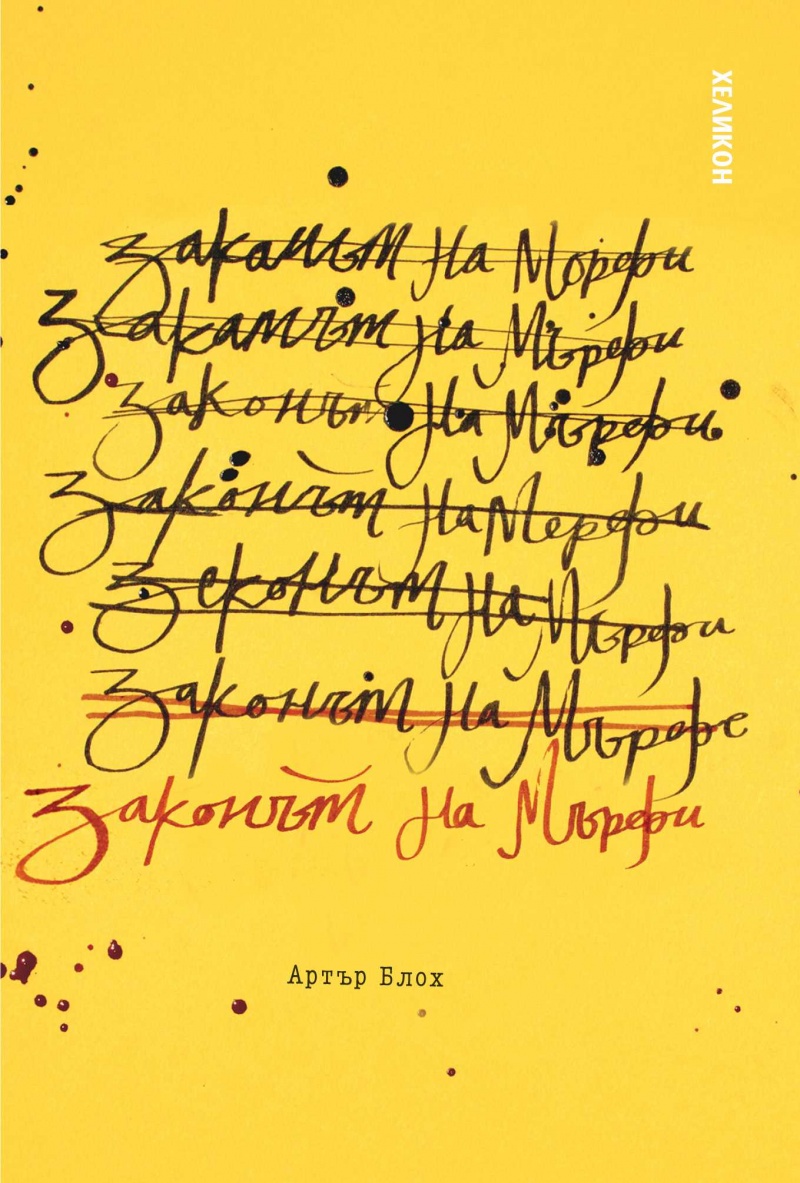 ХЕЛИКОН
закашът на Морфи
закамът на Мърфи
законът на Мърфи
законът на Мерфи
зеконът на Мърфи
законът на Мърфе
законът на Мърфи
Артър Блох